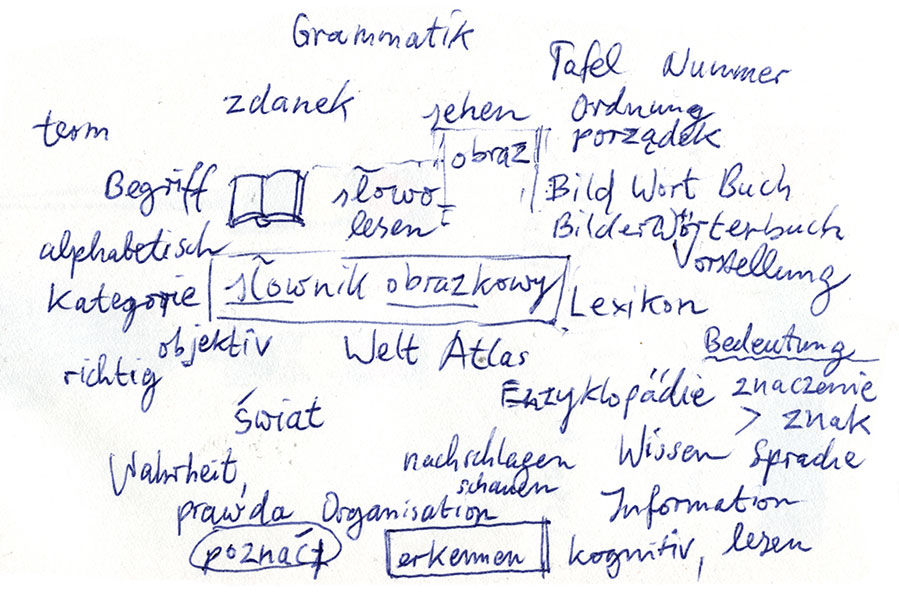 Grammatik
Tafel Nummer
zdanek sehen Ordnung
term obraz porządek
Begriff słowo Bild Wort Buch
lesen BilderWörterbuch
alphabetisch Vorstellung
Kategorie słownik obrazkowy Lexikon
objektiv Welt Atlas Bedeutung
richtig Enzyklopädie znaczenie
świat > znak
Wahrheit, nachschlagen Wissen Sprache
schauen
prawda Organisation Information
poznać erkennen kognitiv, lesen